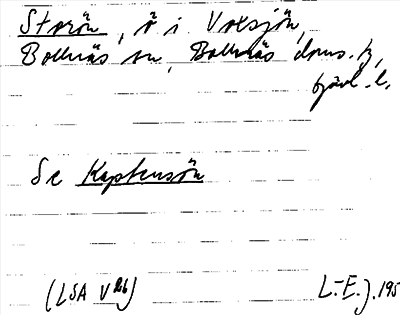 Storön, ö i Voxsjön,
Bollnäs sn, Bollnäs doms. h,
Gävl. l.
Se Kaptensön
(LSA V26) L.-E. J. 195